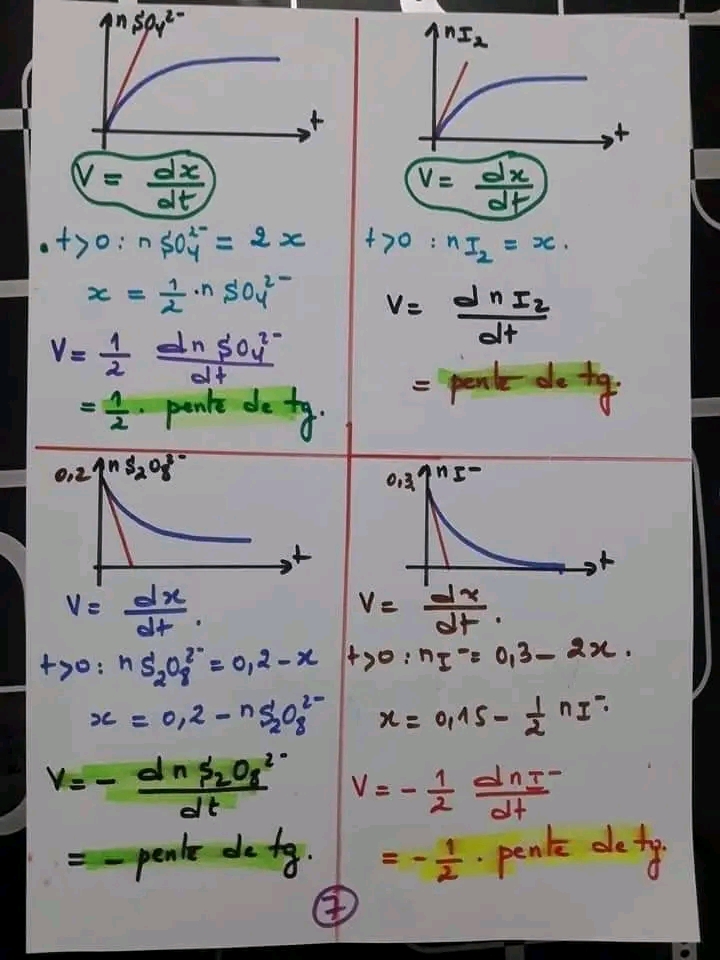 n SO₄²⁻
t
V = dx/dt
• t>0 : n SO₄²⁻ = 2 x
x = 1/2 · n SO₄²⁻
V = 1/2 dn SO₄²⁻/dt
= 1/2 · pente de tg.
n I₂
t
V = dx/dt
t>0 : n I₂ = x.
V = d n I₂/dt
= pente de tg.
0,2 n S₂O₈²⁻
t
V = dx/dt.
t>0 : n S₂O₈²⁻ = 0,2 - x
x = 0,2 - n S₂O₈²⁻
V = - d n S₂O₈²⁻/dt
= - pente de tg.
0,3 n I⁻
t
V = dx/dt.
t>0 : n I⁻ = 0,3 - 2x.
x = 0,15 - 1/2 n I⁻.
V = - 1/2 d n I⁻/dt
= - 1/2 · pente de tg.
7